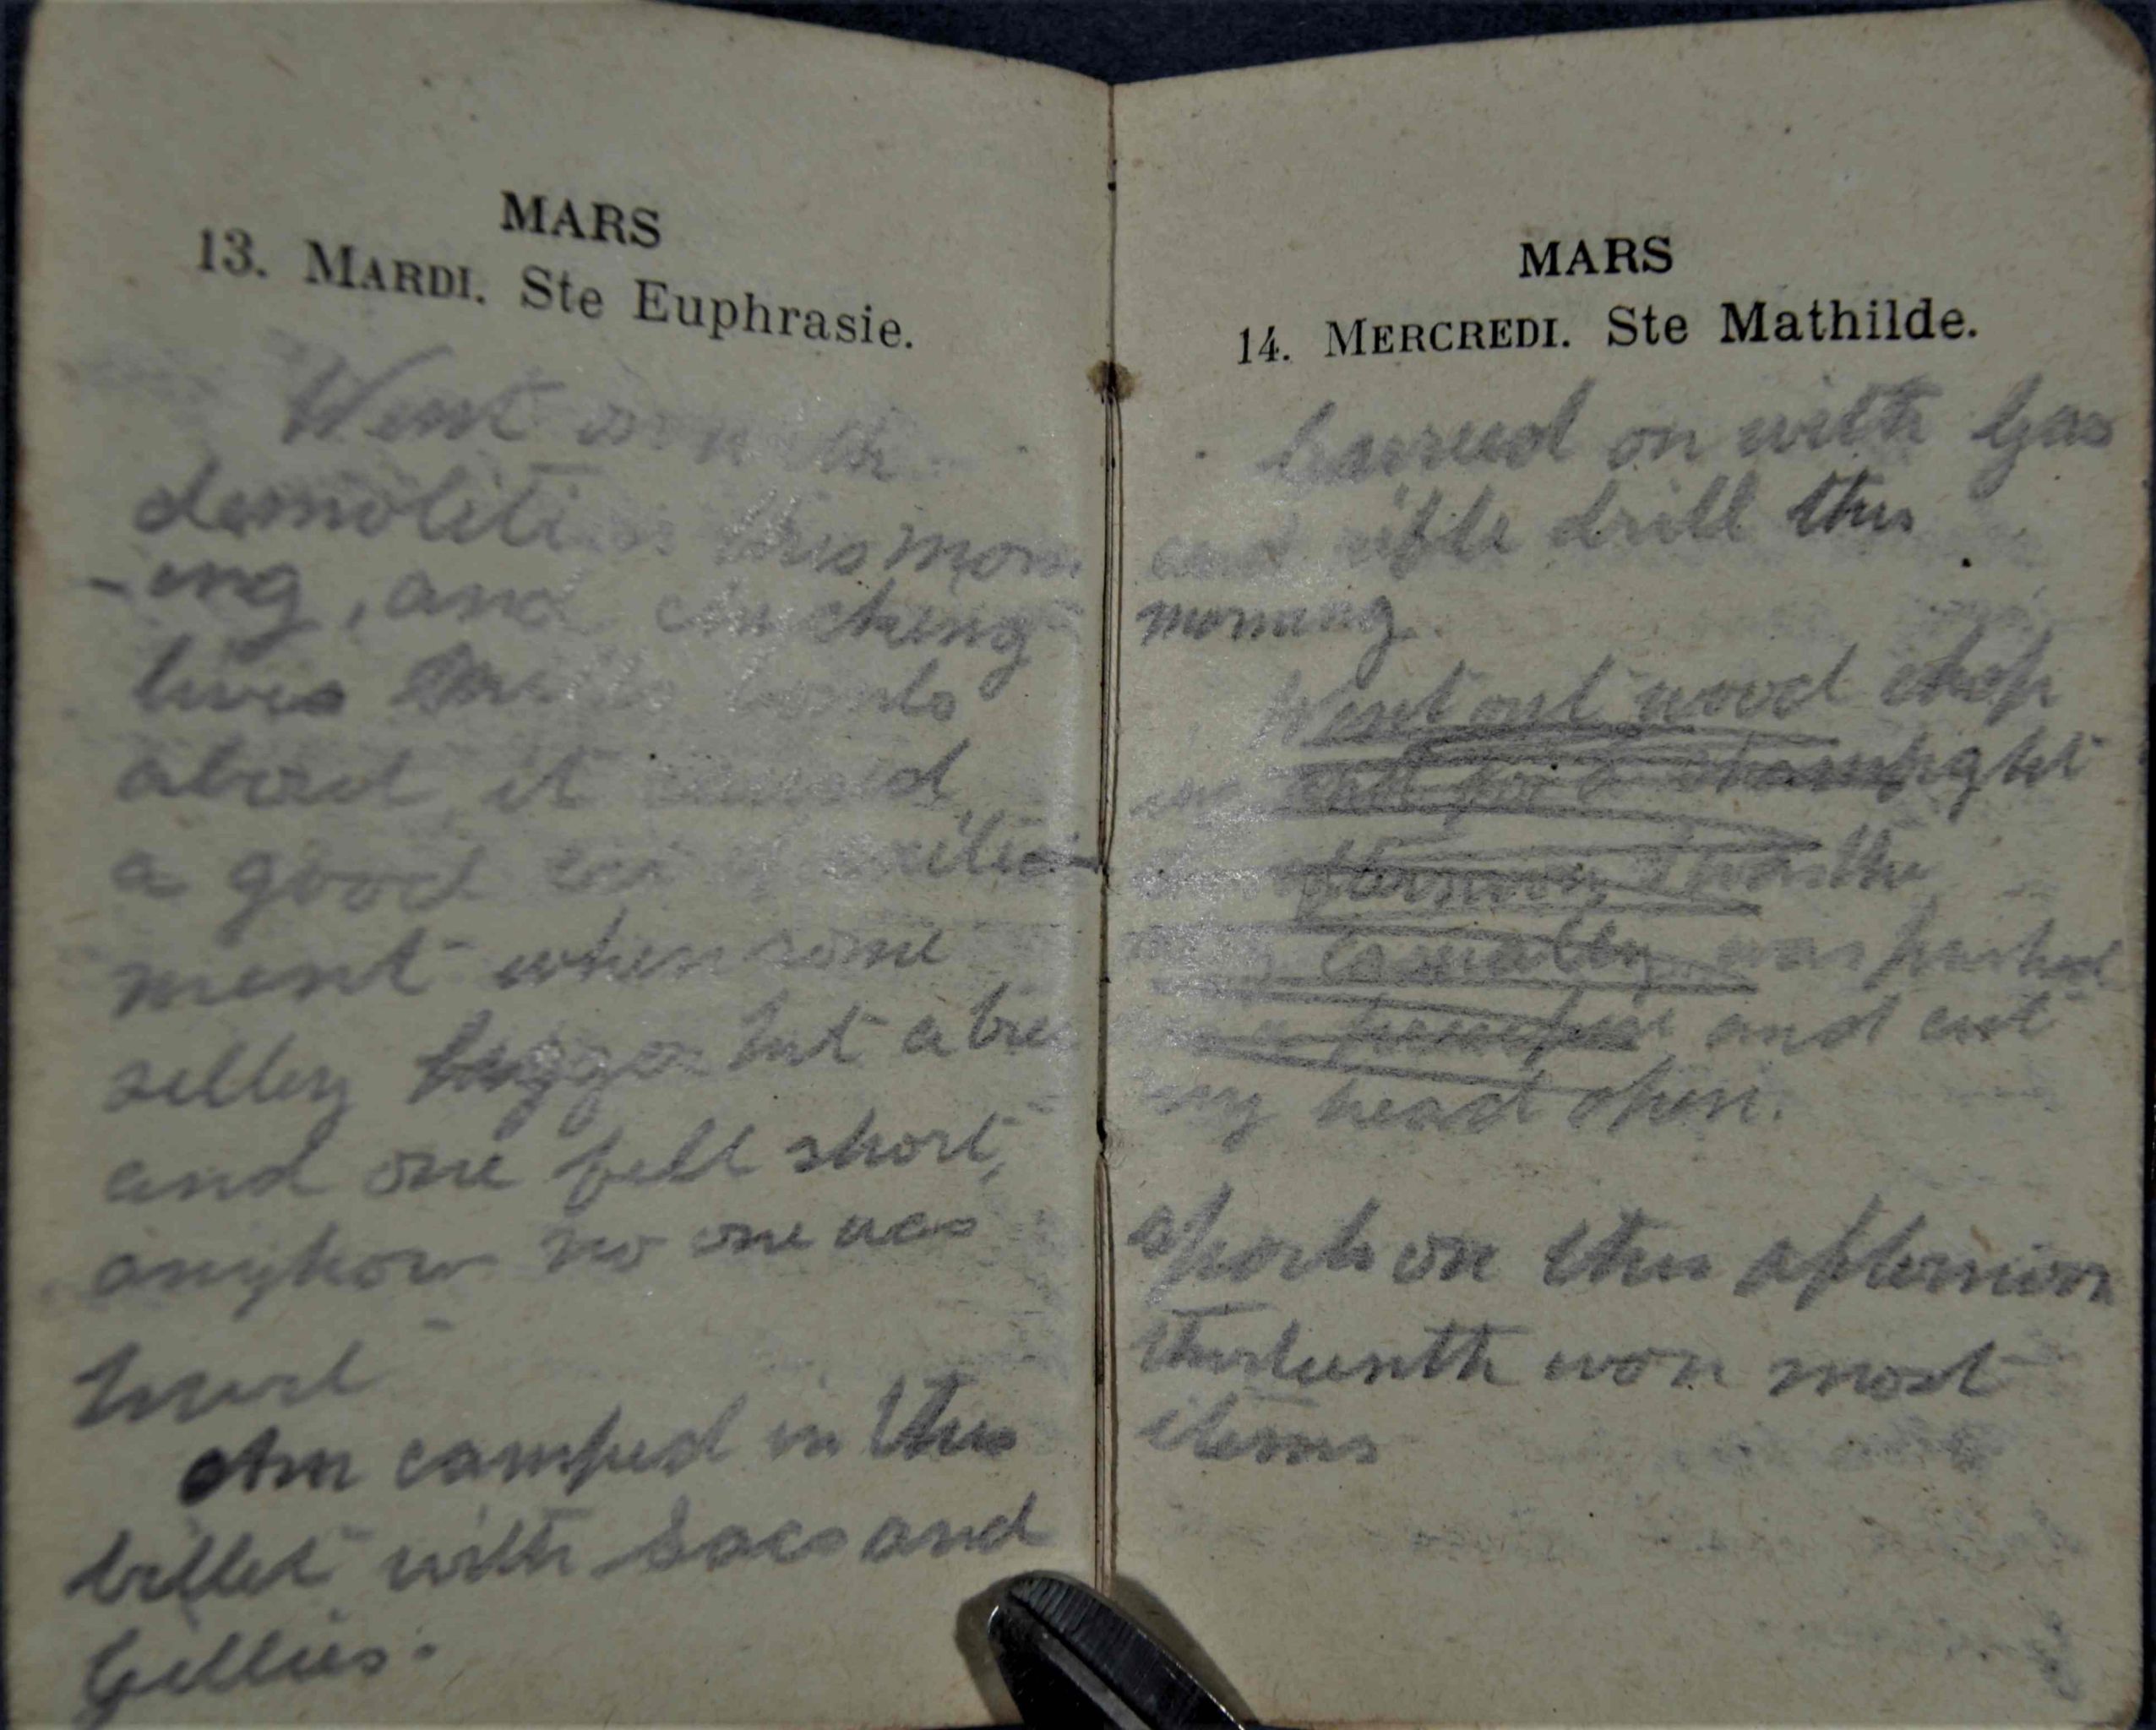 MARS
13. MARDI. Ste Euphrasie.
Went on with
demolitions this morn
-ing, and chucking
lives Mills bombs
about, it caused
a good excite
ment when some
silley bugger hit a tree
and one fell short,
anyhow no one was
hurt
Am camped in this
billet with and
Gillies.
MARS
14. MERCREDI. Ste Mathilde.
Carried on with Gas
and rifle drill this
morning.
Went out wood chop
ing
afternoon, I was the
only casualty was pushed
and cut
my head open.
Sports on this afternoon
thirteenth won most
items